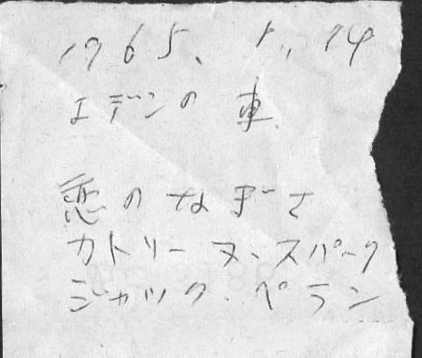 1965、 14
エデンの車
恋のなぎさ
カトリーヌ・スパーク
ジャック・ペラン